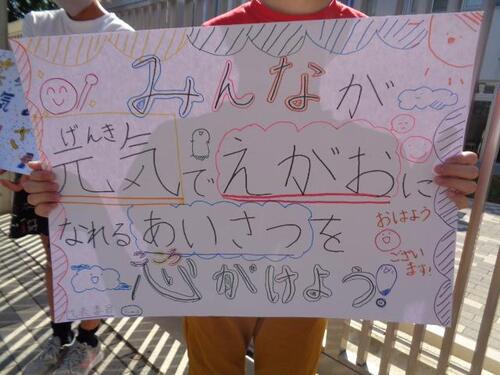 みんなが
げんき
元気でえがおに
なれるあいさつを
こころ
心がけよう!
おはよう
ござい
ます!